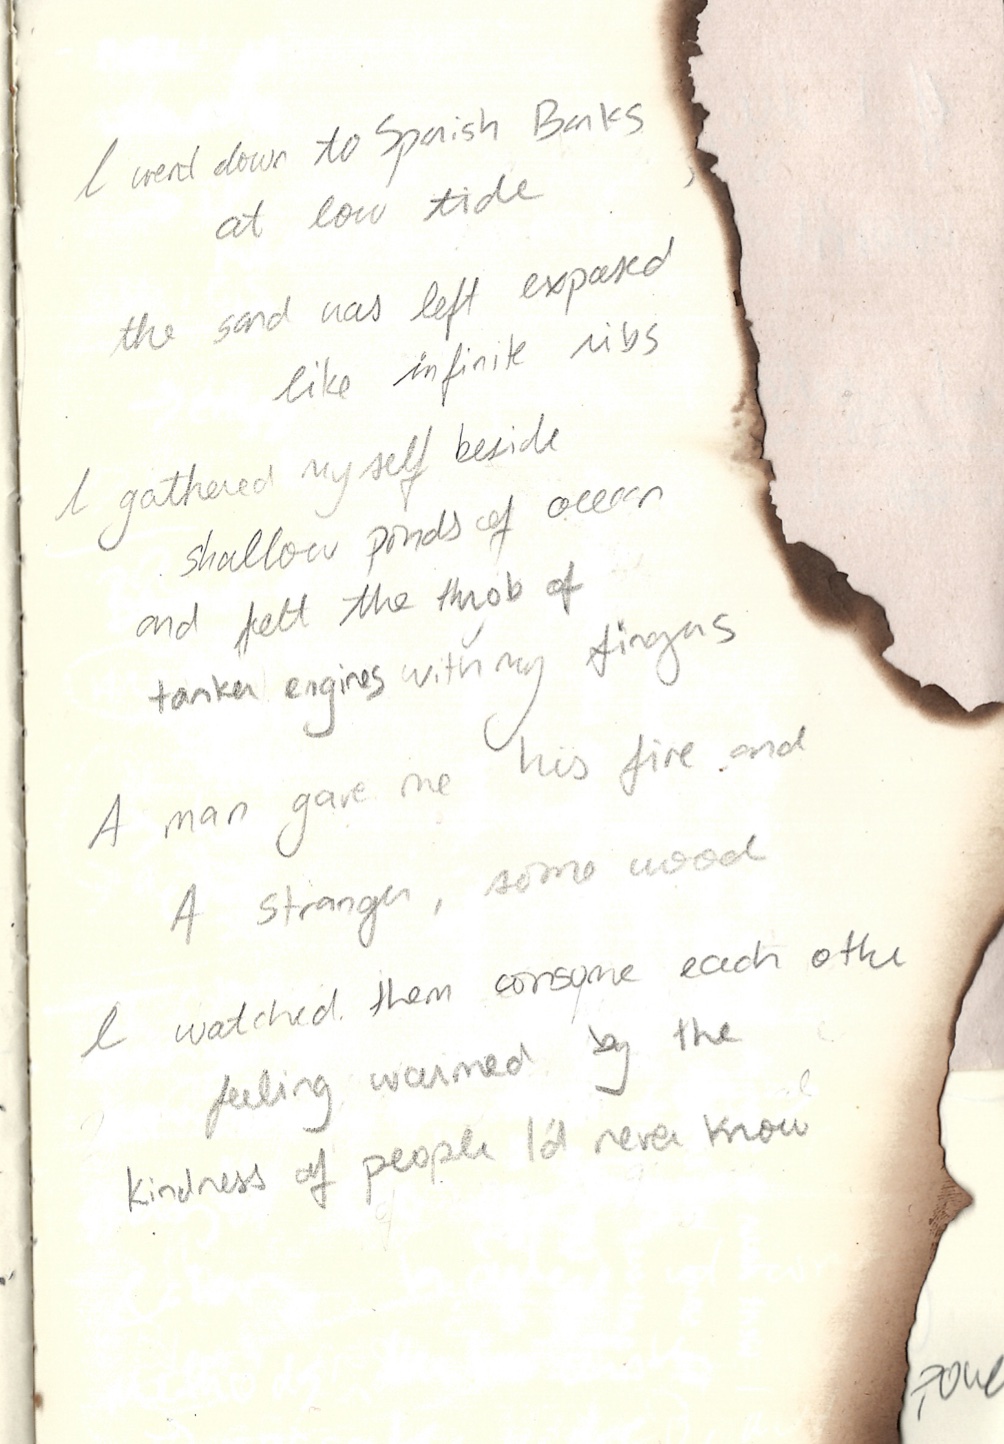 I went down to Spanish Banks
at low tide
the sand was left exposed
like infinite ribs
I gathered myself beside
shallow ponds of ocean
and felt the throb of
tanker engines with my fingers
A man gave me his fire and
A stranger, some wood
I watched them consume each other
feeling warmed by the
kindness of people I'd never know